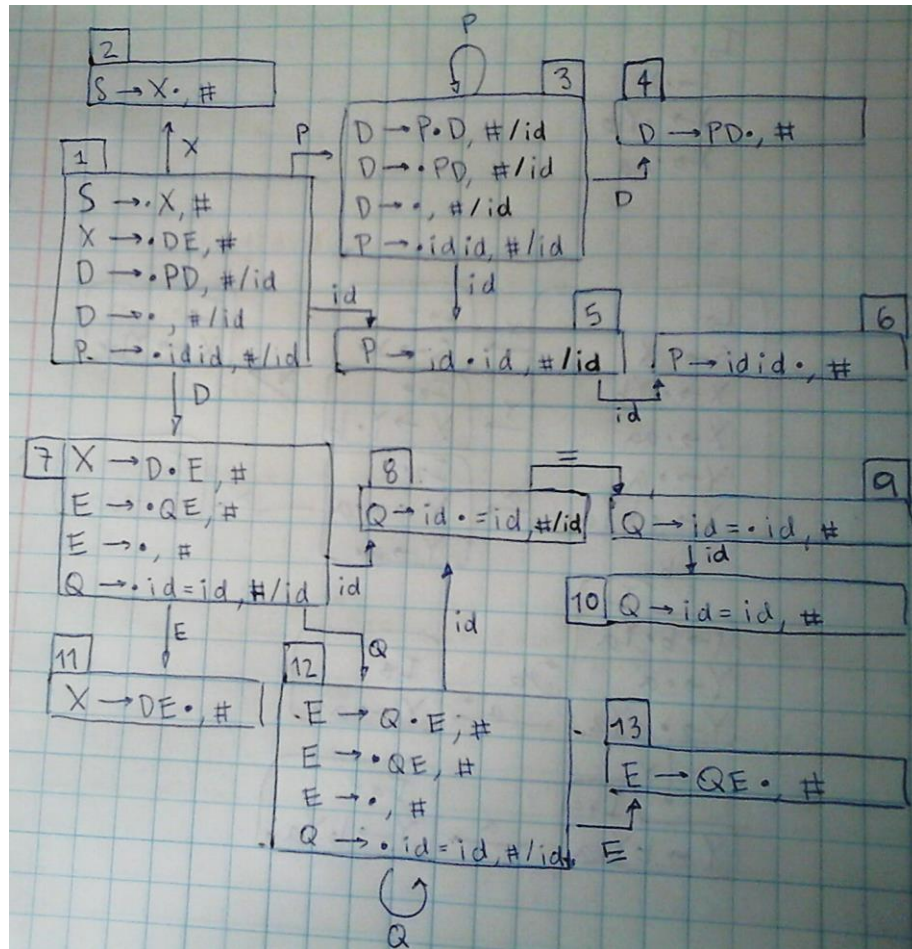 2
S → X·, #
X
P
1
S → ·X, #
X → ·DE, #
D → ·PD, #/id
D → ·, #/id
P → ·idid, #/id
P
3
D → P·D, #/id
D → ·PD, #/id
D → ·, #/id
P → ·idid, #/id
D
4
D → PD·, #
id
id
5
P → id·id, #/id
id
6
P → idid·, #
D
7
X → D·E, #
E → ·QE, #
E → ·, #
Q → ·id=id, #/id
id
8
Q → id·=id, #/id
=
9
Q → id=·id, #
id
10
Q → id=id, #
E
Q
id
11
X → DE·, #
12
E → Q·E, #
E → ·QE, #
E → ·, #
Q → ·id=id, #/id
E
13
E → QE·, #
Q